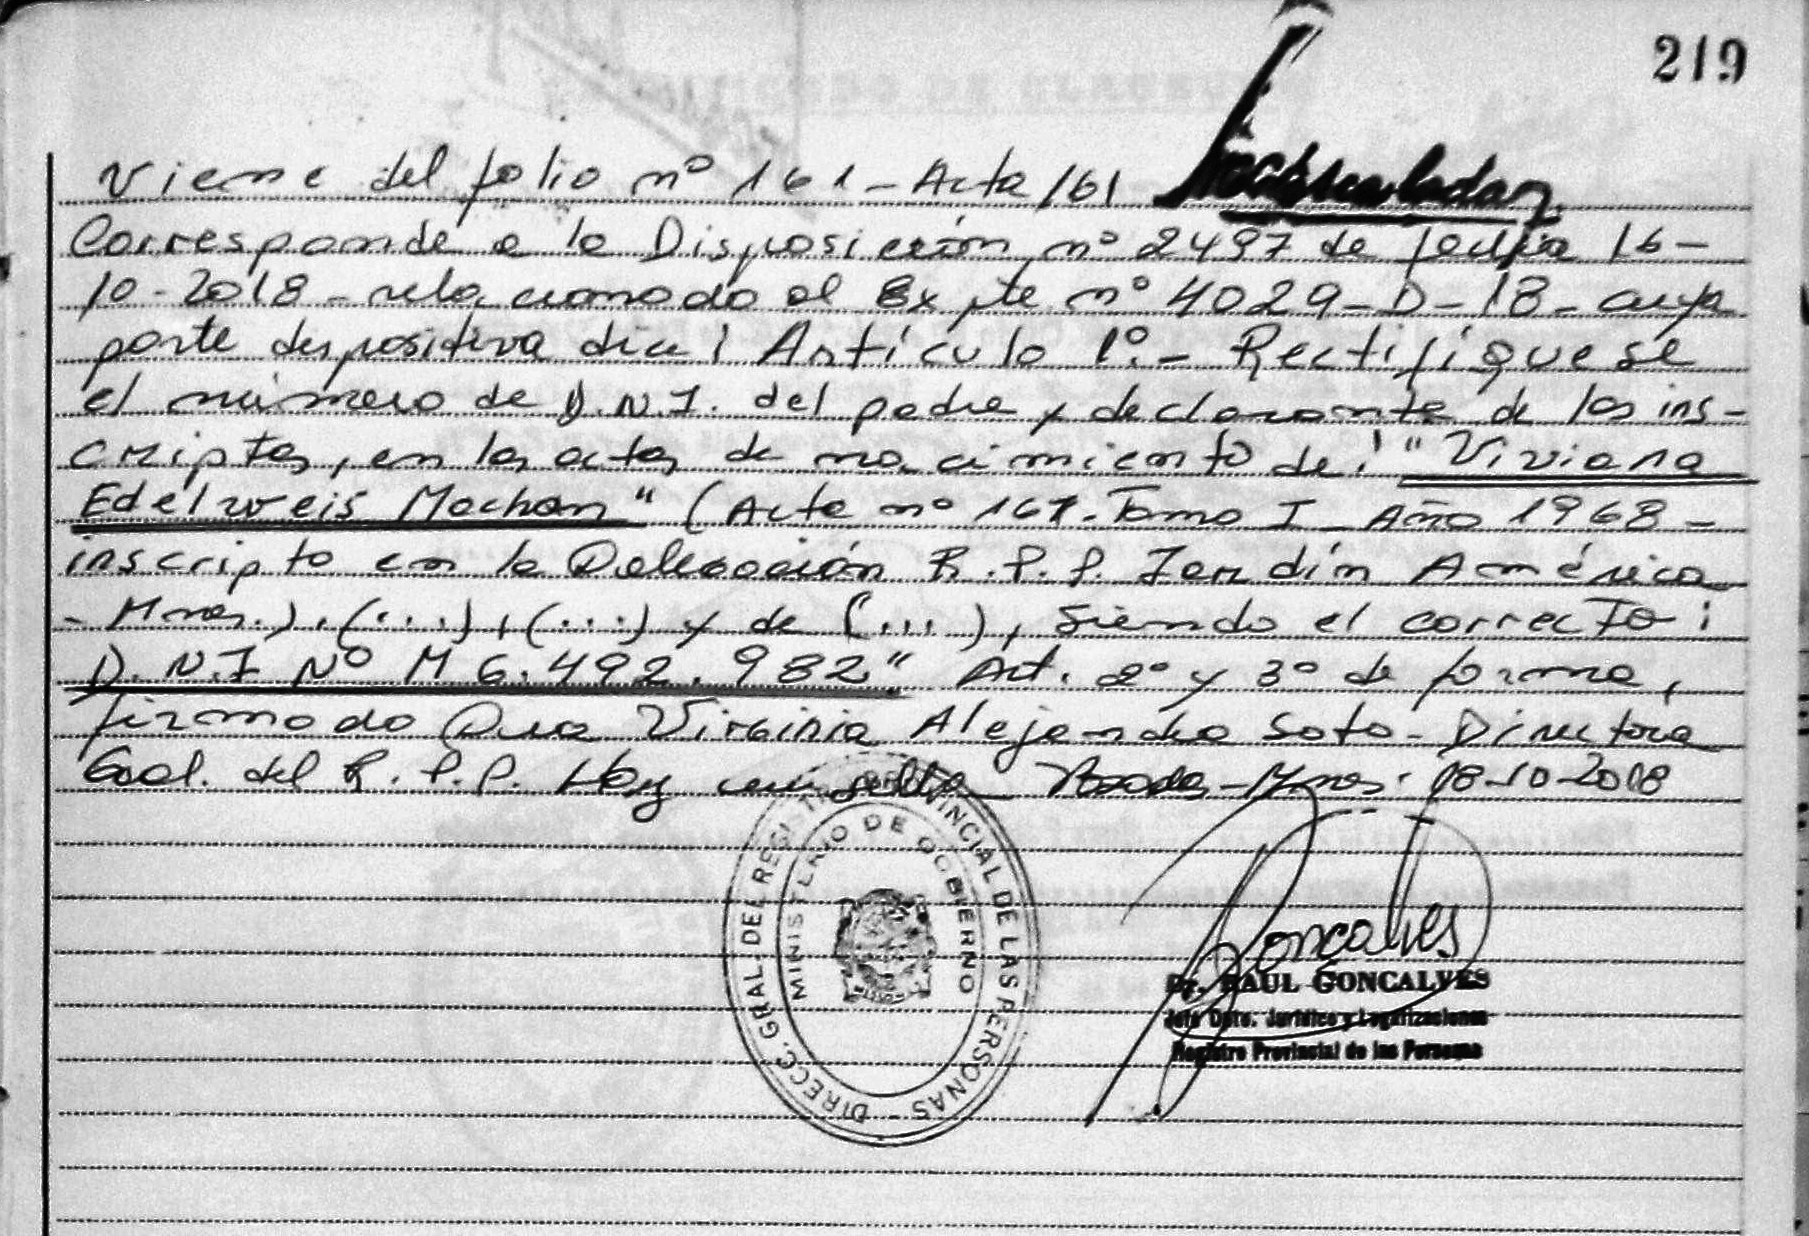 219
Viene del folio nº 161 - Acta 161
Corresponde a la Disposición nº 2497 de fecha 16-
10-2018 - relacionado al Expte nº 4029-D-18 - cuya
parte dispositiva dice: Artículo 1º.- Rectifíquese
el número de D.N.I. del padre y declarante de los ins-
criptos, en las actas de nacimiento de: "Viviana
Edelweis Mochan" (Acta nº 161. Tomo I - Año 1968 -
inscripto en la Delegación R.P.P. Jardín América
- Mnes.), (...), (...) y de (...), siendo el correcto:
D.N.I Nº M 6.492.982" Art. 2º y 3º de forma,
firmado Dra Virginia Alejandra Soto - Directora
Gral. del R.P.P. Hay un sello Posadas - Mnes. 18-10-2018
DIRECC. GRAL. DEL REGISTRO PROVINCIAL DE LAS PERSONAS -
MINISTERIO DE GOBIERNO
Goncalves
Dr. RAUL GONCALVES
Jefe Dpto. Jurídico y Legalizaciones
Registro Provincial de las Personas